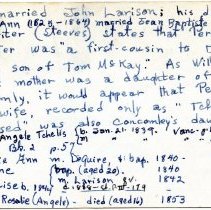 married John Larison; his d
Ann (1825-1864) married Jean Baptiste
iter (Steeves) states that Pet
ter was "a first-cousin to D
son of Tom McKay." As Will
mother was a daughter of
mly, it would appear that Pe
wife, recorded only as "Tel
sed, was also Concomley's daug
Angele Tchelis (b. Jan. 21-1839. Vanc-g
Bk. 2 p. 57
te Ann m. Dequire, & bap. 1840-
ne bap. (aged 20). 1840
m. Larison 1842
ise b. 1841
Rosalie (Angele) - died (aged 16) 1853